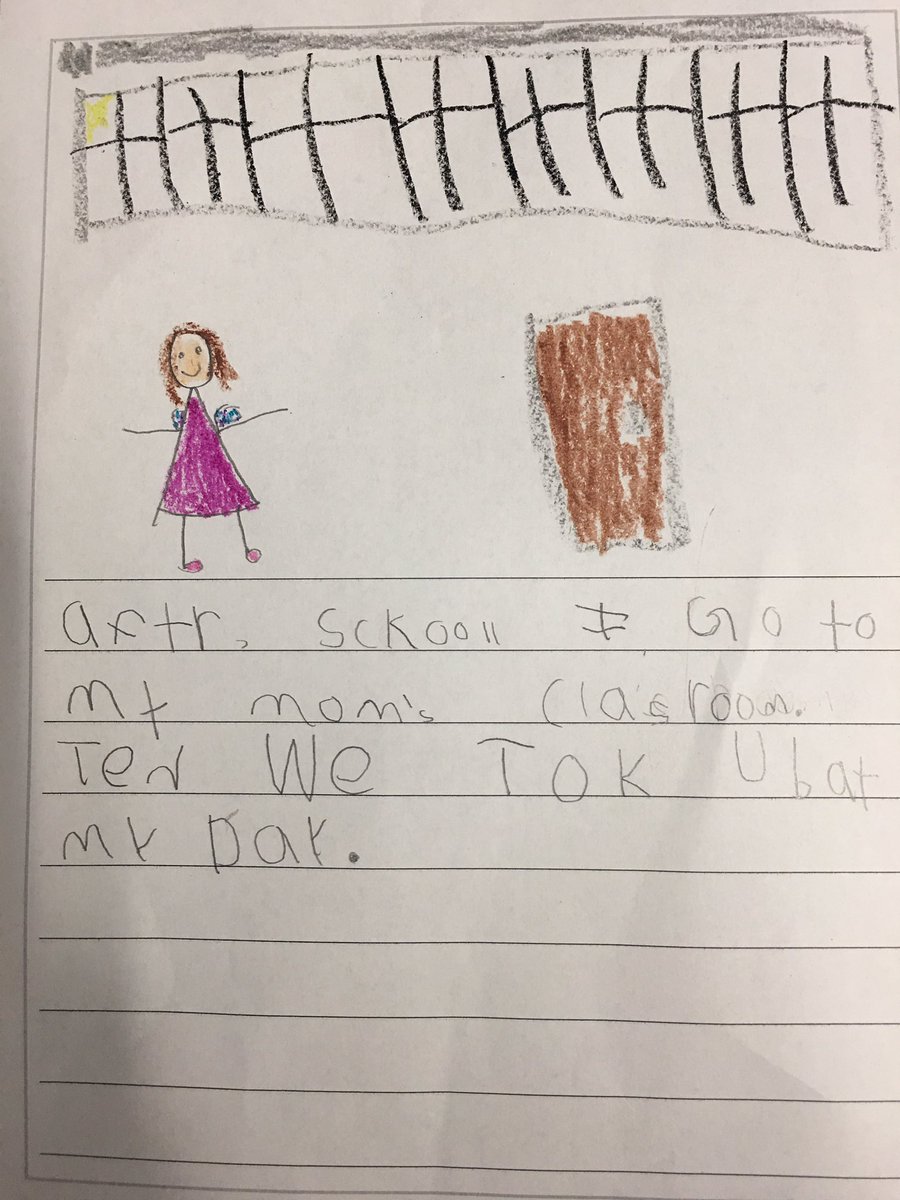 aftr, sckooll I Go to
my mom's classroom.
Ten We Tok Ubat
my Day.